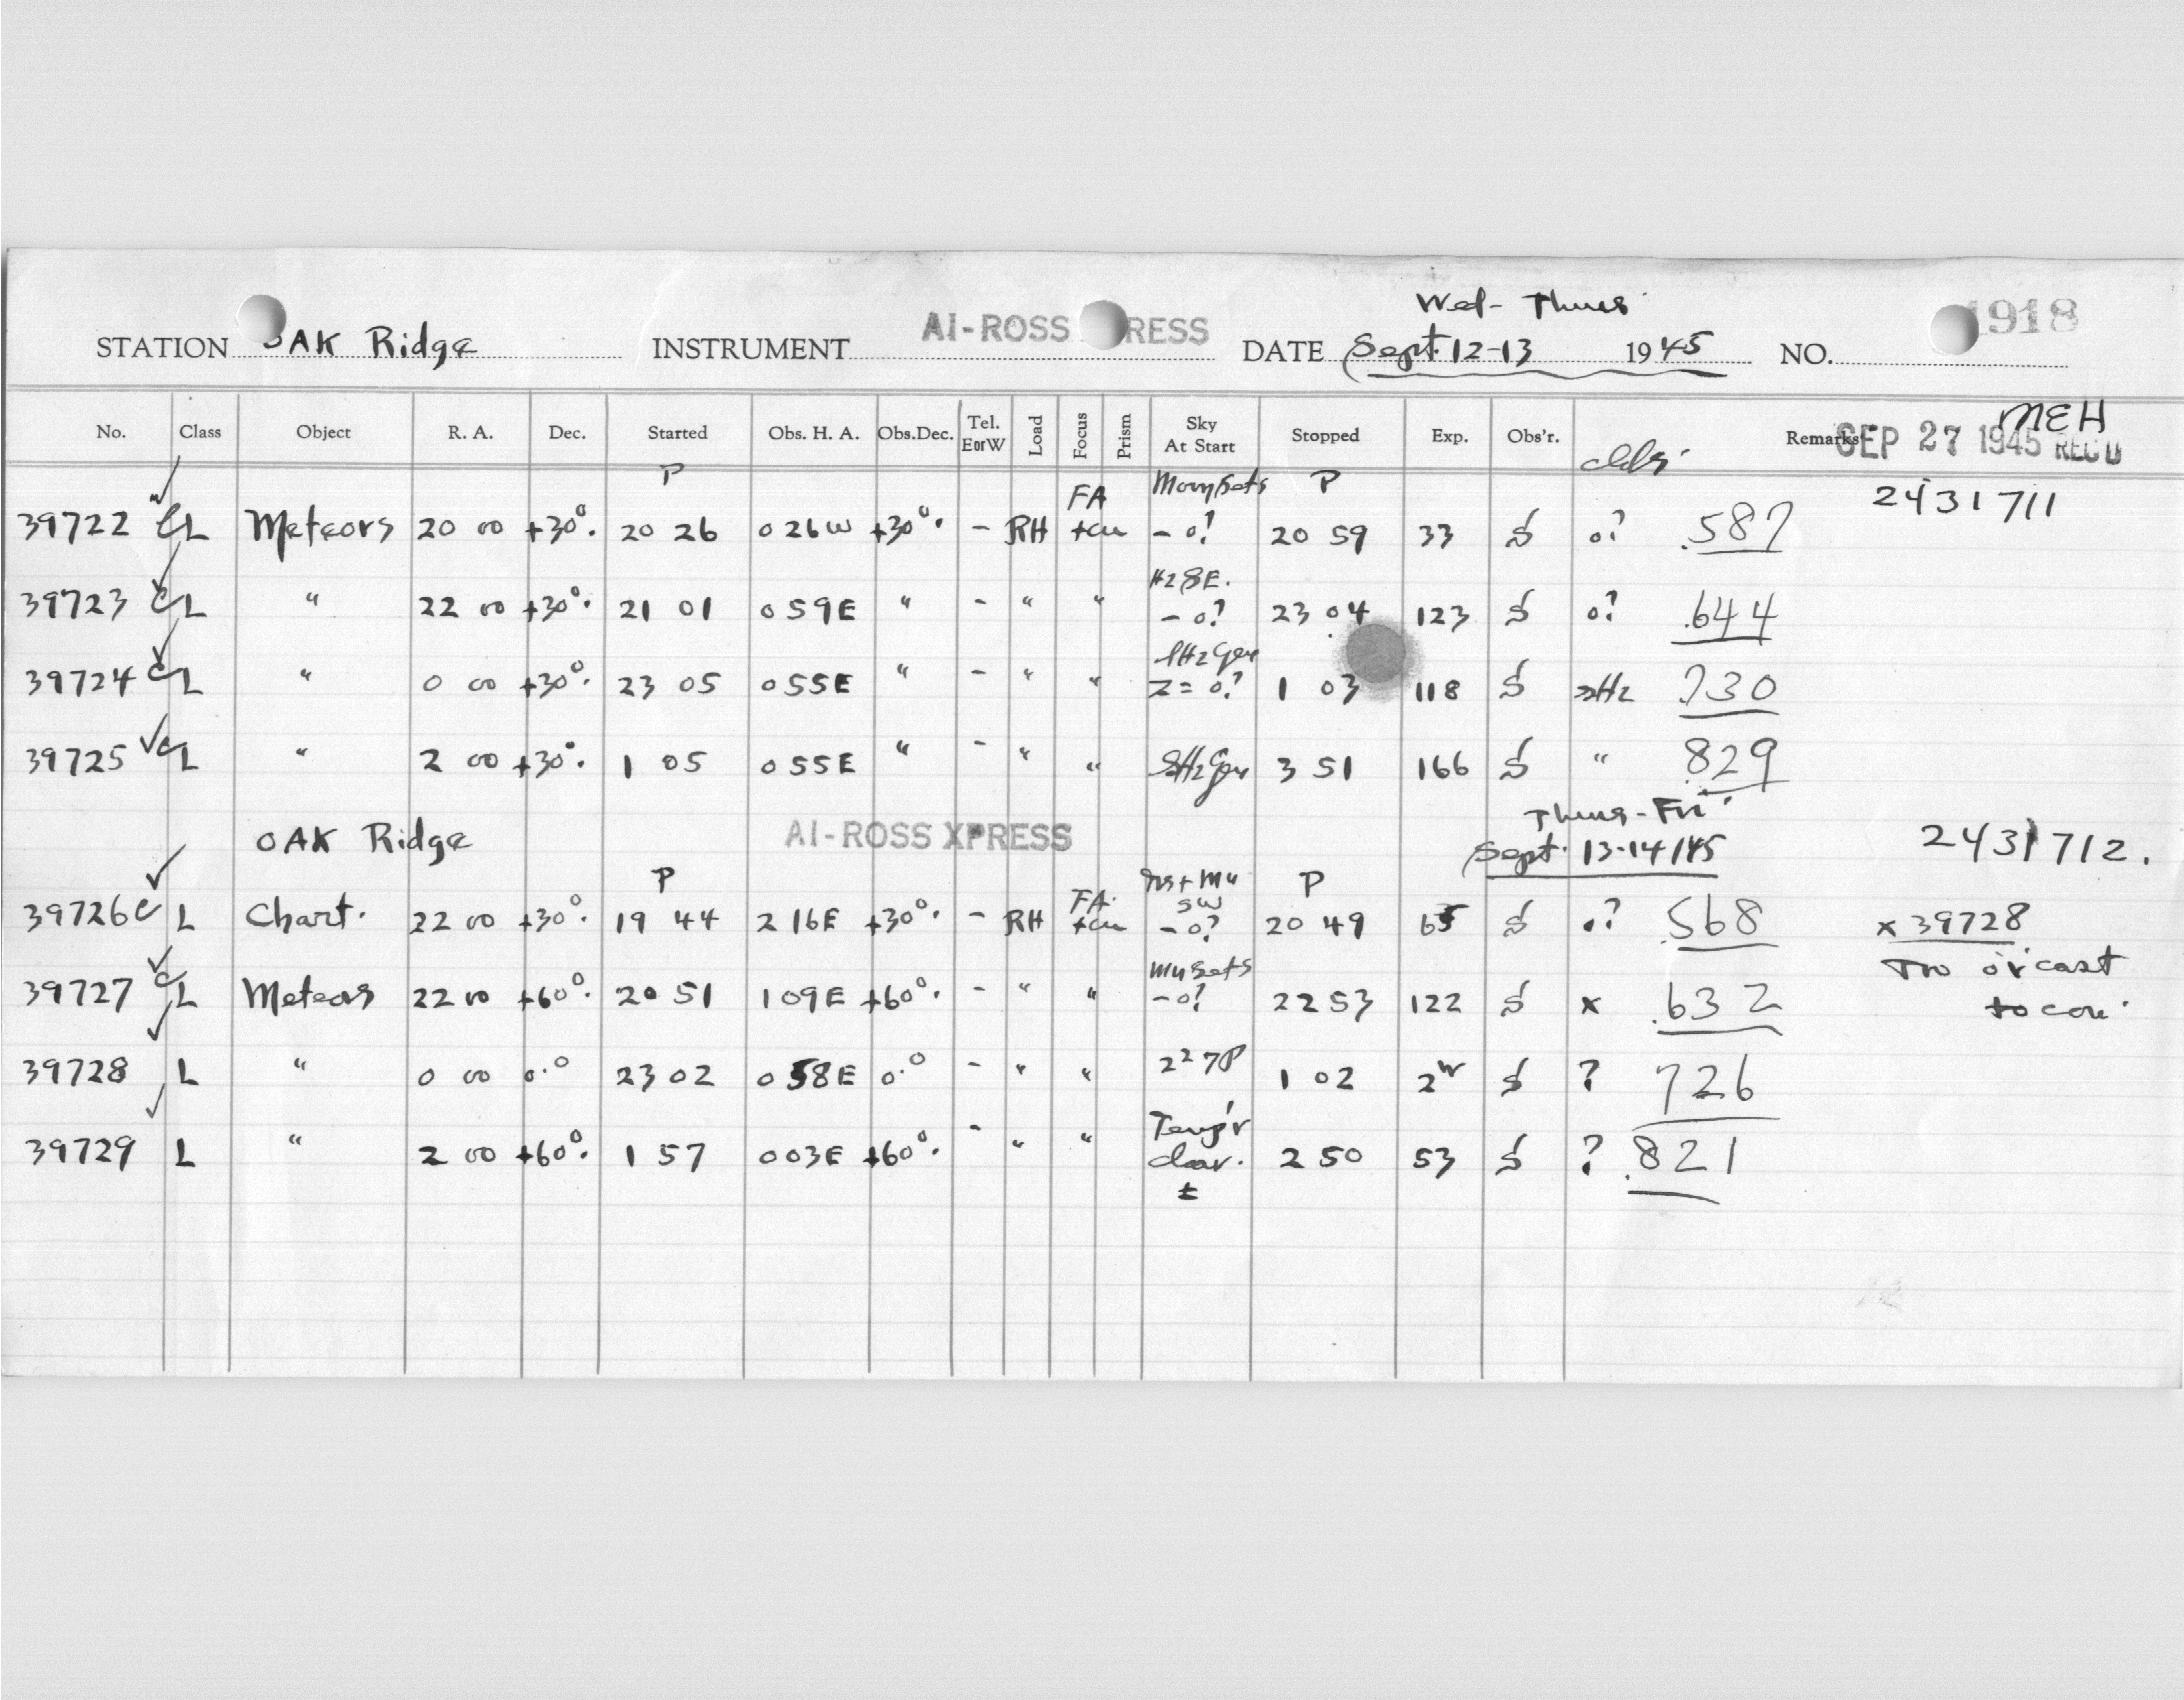 Wed - Thurs
STATION OAK Ridge INSTRUMENT AI-ROSS RESS DATE Sept. 12-13 1945 NO. 1918
No. Class Object R. A. Dec. Started Obs. H. A. Obs.Dec. Tel. E or W Load Focus Prism Sky At Start Stopped Exp. Obs'r. Remarks SEP 27 1945 REC'D MEH
P P
39722 C L Meteors 20 00 +30°. 20 26 0 26W +30°. - RH FA - 0? 20 59 33 S 0? .587 2431711
39723 C L " 22 00 +30°. 21 01 0 59E " - " " Hz 8E. - 0? 23 04 123 S 0? .644
39724 C L " 0 00 +30°. 23 05 0 55E " - " " Z = 0? 1 03 118 S Hz .730
39725 C L " 2 00 +30°. 1 05 0 55E " - " " 3 51 166 S " .829
OAK Ridge AI-ROSS XPRESS Thurs-Fri. Sept. 13-14/45 2431712.
P P
39726 C L Chart. 22 00 +30°. 19 44 2 16E +30°. - RH FA. SW - 0? 20 49 65 S 0? .568 x 39728
39727 C L Meteors 22 00 +60°. 20 51 1 09E +60°. - " " - 0? 22 53 122 S x .632 Two o'cast
39728 L " 0 00 0.° 23 02 0 58E 0.° - " " 1 02 2 S ? 726
39729 L " 2 00 +60°. 1 57 0 03E +60°. - " " clear. ± 2 50 53 S ? .821